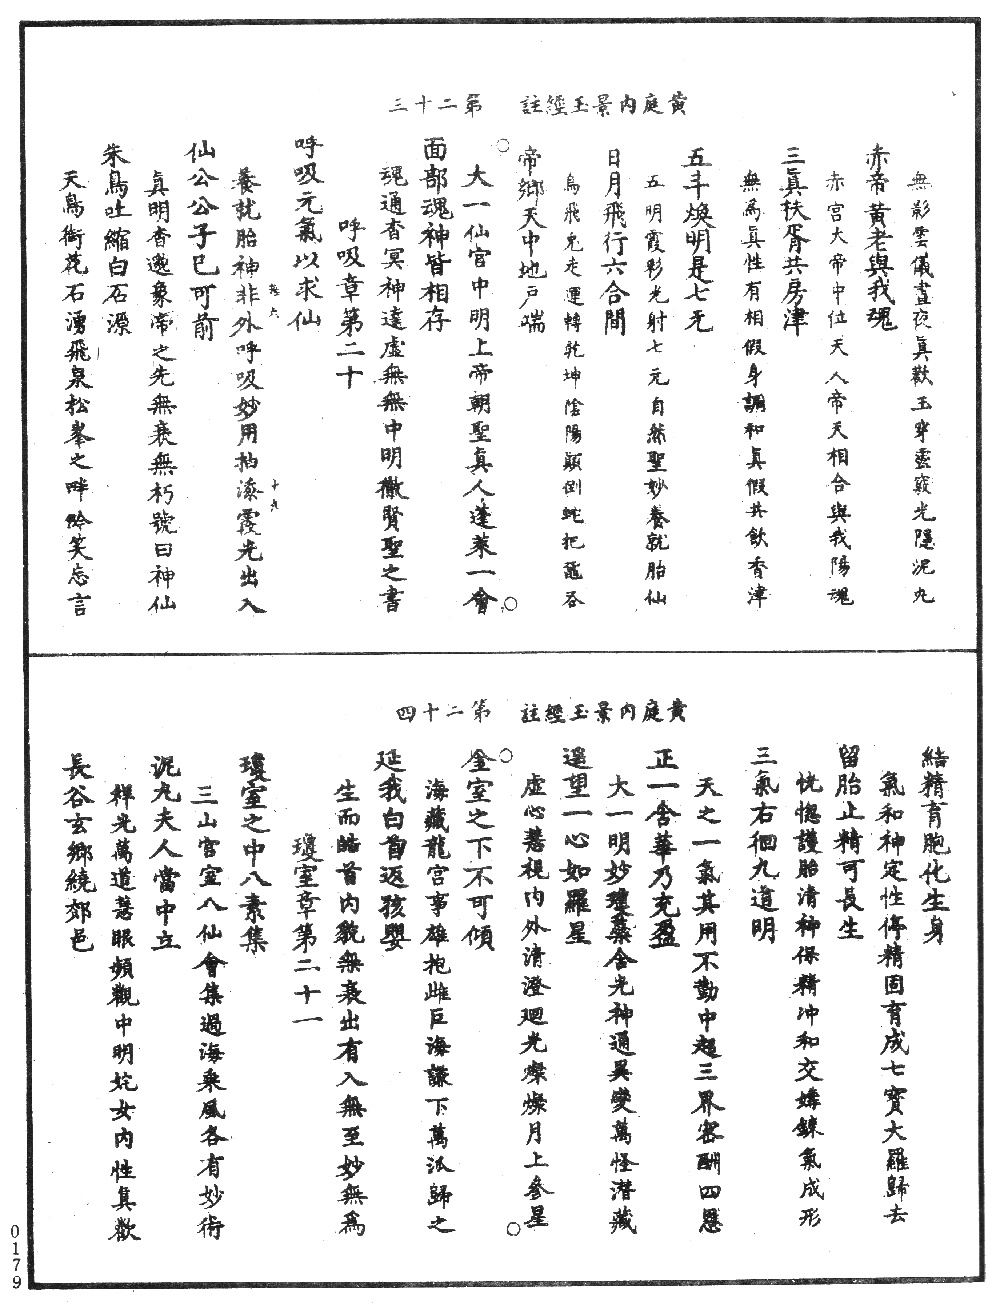 黃庭內景玉經註　第二十三
無影雲儀晝夜真歡玉穿靈竅光隱泥丸
赤帝黃老與我魂
赤宮大帝中位天人帝天相合與我陽魂
三眞扶胥共房津
無爲眞性有相假身調和眞假共飲香津
五斗煥明是七元
五明霞彩光射七元自然聖妙養就胎仙
日月飛行六合間
烏飛兔走運轉乾坤陰陽顛倒蛇把龜吞
帝鄉天中地戶端
大一仙官中明上帝朝聖真人蓬萊一會
面部魂神皆相存
魂通杳冥神達虛無無中明徹賢聖之書
呼吸章第二十
呼吸元氣以求仙
養就胎神非外呼吸妙用抽添霞光出入
卷六
十九
仙公公子已可前
眞明杳邈象帝之先無衰無朽號曰神仙
朱鳥吐縮白石源
天鳥銜花石湧飛泉松峯之畔吟笑忘言
黃庭內景玉經註　第二十四
結精育胞化生身
氣和神定性停精固育成七寶大羅歸去
留胎止精可長生
恍惚護胎清神保精冲和交媾鍊氣成形
三氣右徊九道明
天之一氣其用不勤中超三界密酬四恩
正一含華乃充盈
大一明妙瓊藥含光神通異變萬怪潛藏
遥望一心如羅星
虛心慧視內外清澄迴光燦燦月上參星
金室之下不可傾
海藏龍宮事雄抱雌巨海謙下萬派歸之
延我白首返孩嬰
生而皓首內貌無衰出有入無至妙無爲
瓊室章第二十一
瓊室之中八素集
三山宮室八仙會集過海乘風各有妙術
泥丸夫人當中立
禪光萬道慧眼頻觀中明姹女內性真歡
長谷玄鄉繞郊邑
0179